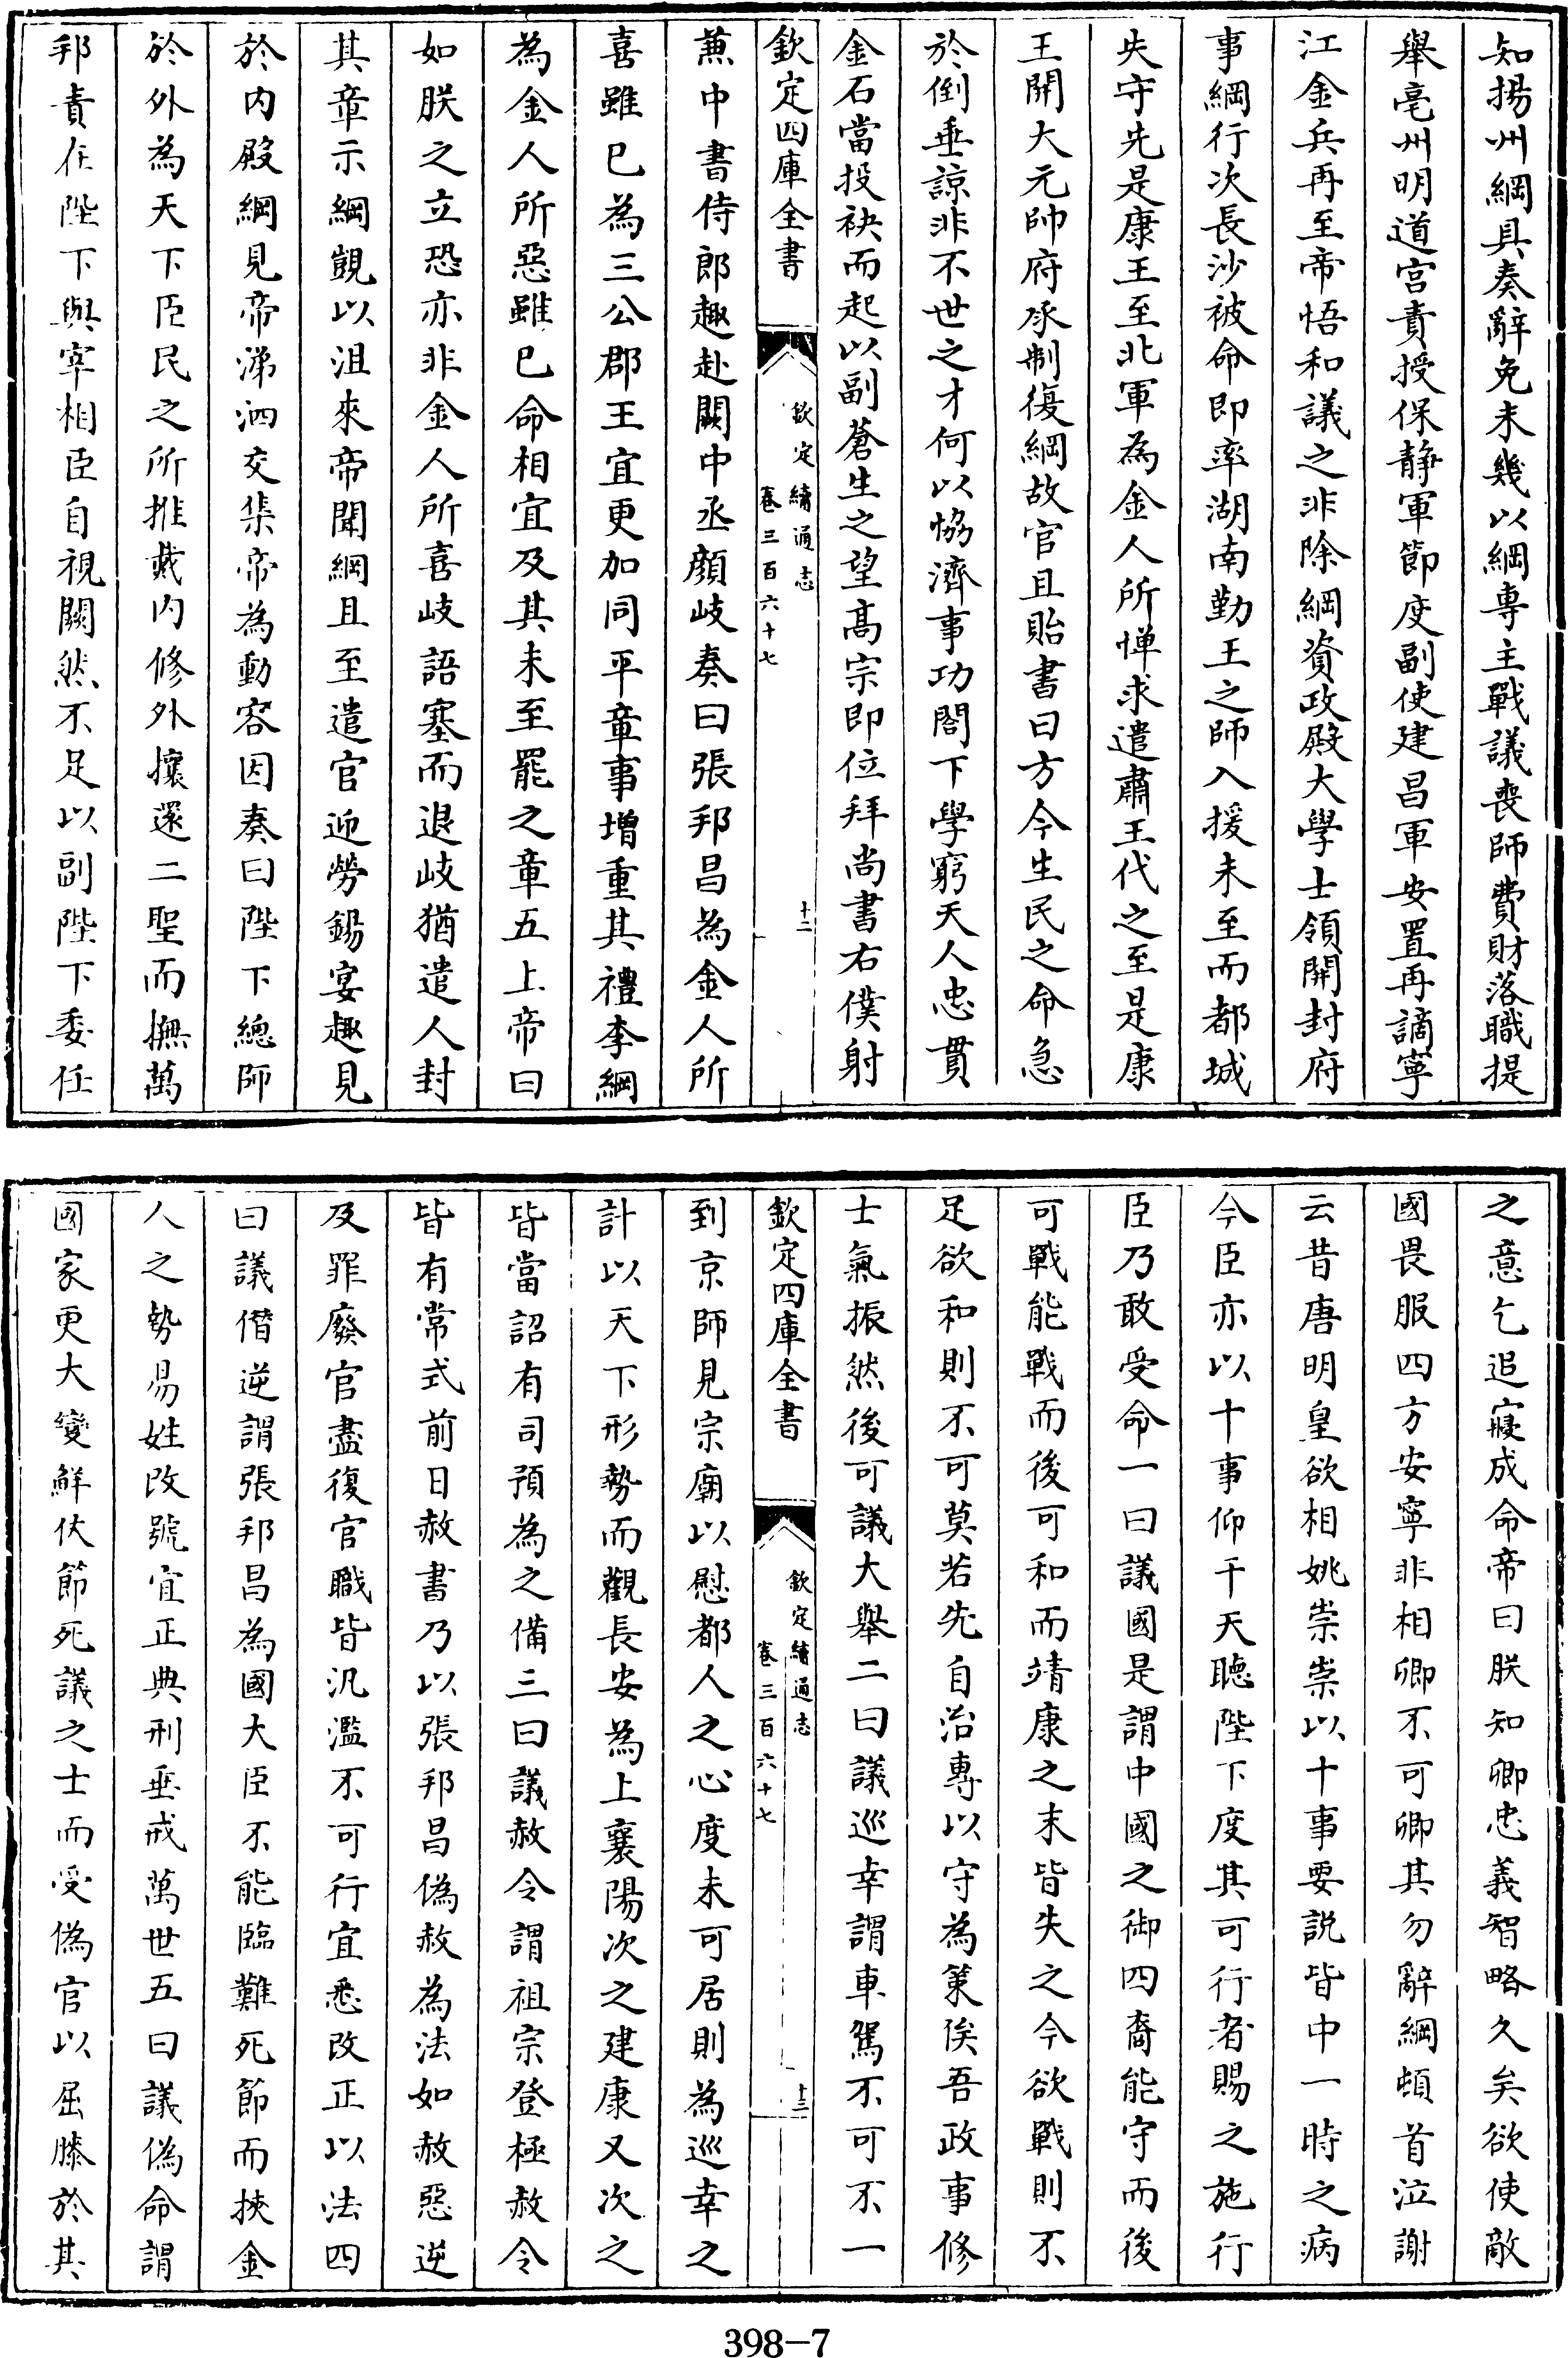 知揚州綱具奏辭免未幾以綱專主戰議喪師費財落職提
舉亳州明道宫責授保静軍節度副使建昌軍安置再謫寧
江金兵再至帝悟和議之非除綱資政殿大學士領開封府
事綱行次長沙被命即率湖南勤王之師入援未至而都城
失守先是康王至北軍為金人所憚求遣肅王代之至是康
王開大元帥府承制復綱故官且貽書曰方今生民之命急
於倒垂諒非不世之才何以恊濟事功閤下學窮天人忠貫
金石當投袂而起以副蒼生之望髙宗即位拜尚書右僕射
欽定四庫全書
欽定續通志
卷三百六十七
十二
兼中書侍郎趣赴闕中丞顔岐奏曰張邦昌為金人所
喜雖已為三公郡王宜更加同平章事増重其禮李綱
為金人所惡雖已命相宜及其未至罷之章五上帝曰
如朕之立恐亦非金人所喜岐語塞而退岐猶遣人封
其章示綱覬以沮來帝聞綱且至遣官迎勞錫宴趣見
於内殿綱見帝涕泗交集帝為動容因奏曰陛下總師
於外為天下臣民之所推戴内修外攘還二聖而撫萬
邦責在陛下與宰相臣自視闕然不足以副陛下委任
之意乞追寢成命帝曰朕知卿忠義智略久矣欲使敵
國畏服四方安寧非相卿不可卿其勿辭綱頓首泣謝
云昔唐明皇欲相姚崇崇以十事要説皆中一時之病
今臣亦以十事仰干天聽陛下度其可行者賜之施行
臣乃敢受命一曰議國是謂中國之御四裔能守而後
可戰能戰而後可和而靖康之末皆失之今欲戰則不
足欲和則不可莫若先自治專以守為策俟吾政事修
士氣振然後可議大舉二曰議巡幸謂車駕不可不一
欽定四庫全書
欽定續通志
卷三百六十七
十三
到京師見宗廟以慰都人之心度未可居則為巡幸之
計以天下形勢而觀長安為上襄陽次之建康又次之
皆當詔有司預為之備三曰議赦令謂祖宗登極赦令
皆有常式前日赦書乃以張邦昌偽赦為法如赦惡逆
及罪廢官盡復官職皆汎濫不可行宜悉改正以法四
曰議僭逆謂張邦昌為國大臣不能臨難死節而挾金
人之勢易姓改號宜正典刑垂戒萬世五曰議偽命謂
國家更大變鮮伏節死議之士而受偽官以屈膝於其
398-7